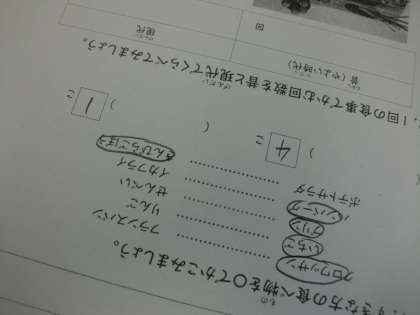 すきな方の食べ物を○でかこみましょう。
クロワッサン ………… フランスパン
いちご ………… りんご
プリン ………… せんべい
ハンバーグ ………… イカフライ
ポテトサラダ ………… きんぴらごぼう
( 4 こ ) ( 1 こ
1回の食事でかむ回数を昔と現代でくらべてみましょう。
昔(やよい時代) 現代
回